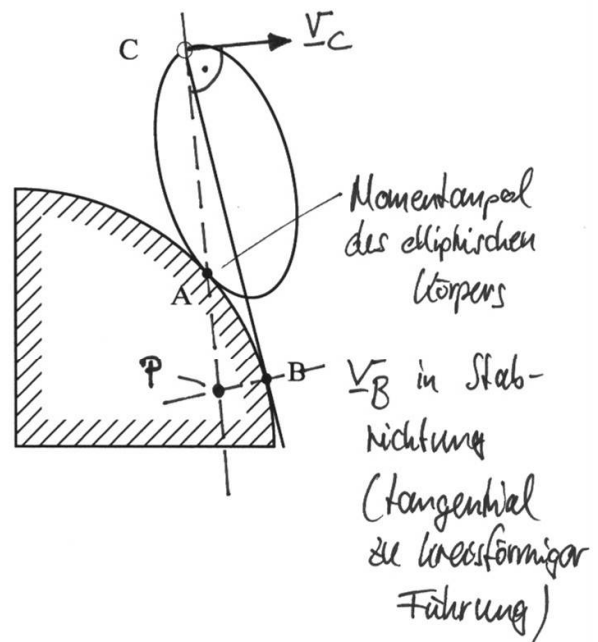 C
V_C
Momentanpol
des elliptischen
Körpers
A
P
B
V_B in Stab-
richtung
(tangential
zu kreisförmiger
Führung)